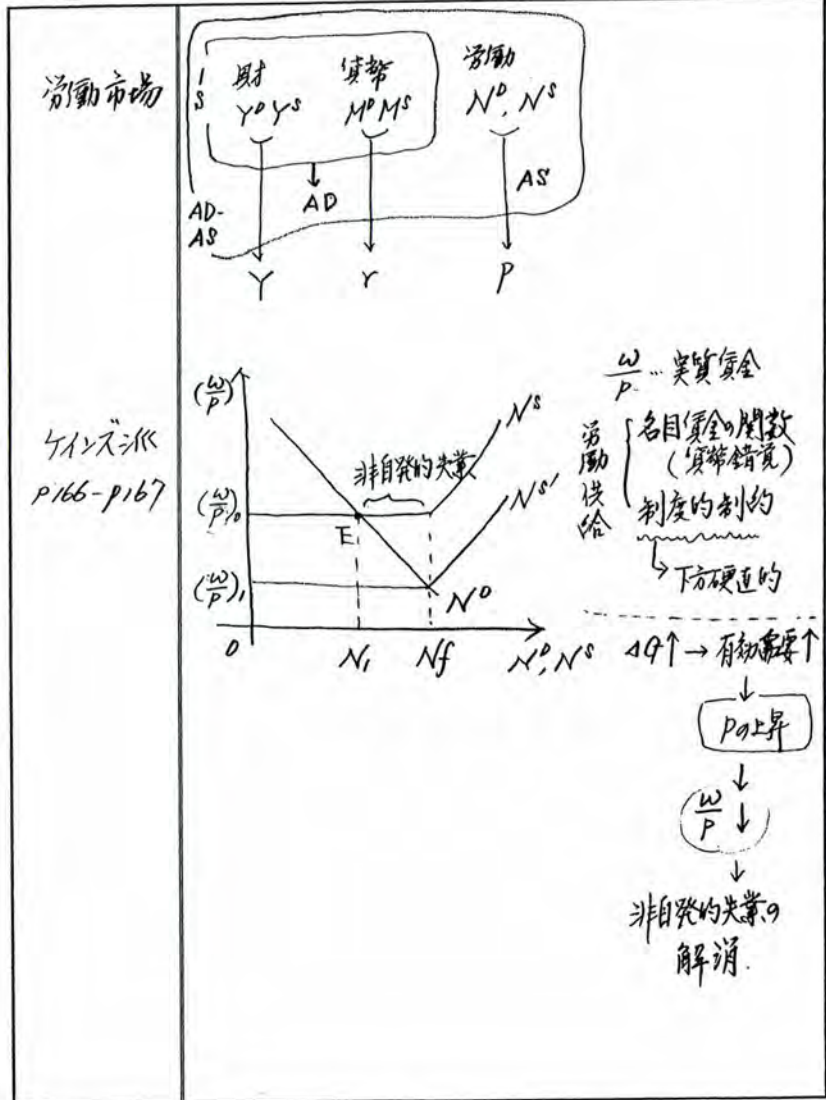 労働市場
IS
財
貨幣
労働
Y^D Y^S
M^D M^S
N^D, N^S
AD
AS
AD-
AS
Y
r
P
ケインズ派
P166-P167
(w/p)
(w/p)₀
(w/p)₁
非自発的失業
N^S
N^S'
E
N^D
0
N₁
Nf
N^D, N^S
w/p … 実質賃金
労働供給
名目賃金の関数
(貨幣錯覚)
制度的制約
→下方硬直的
⊿G↑ → 有効需要↑
↓
Pの上昇
↓
w/p ↓
↓
非自発的失業の
解消.